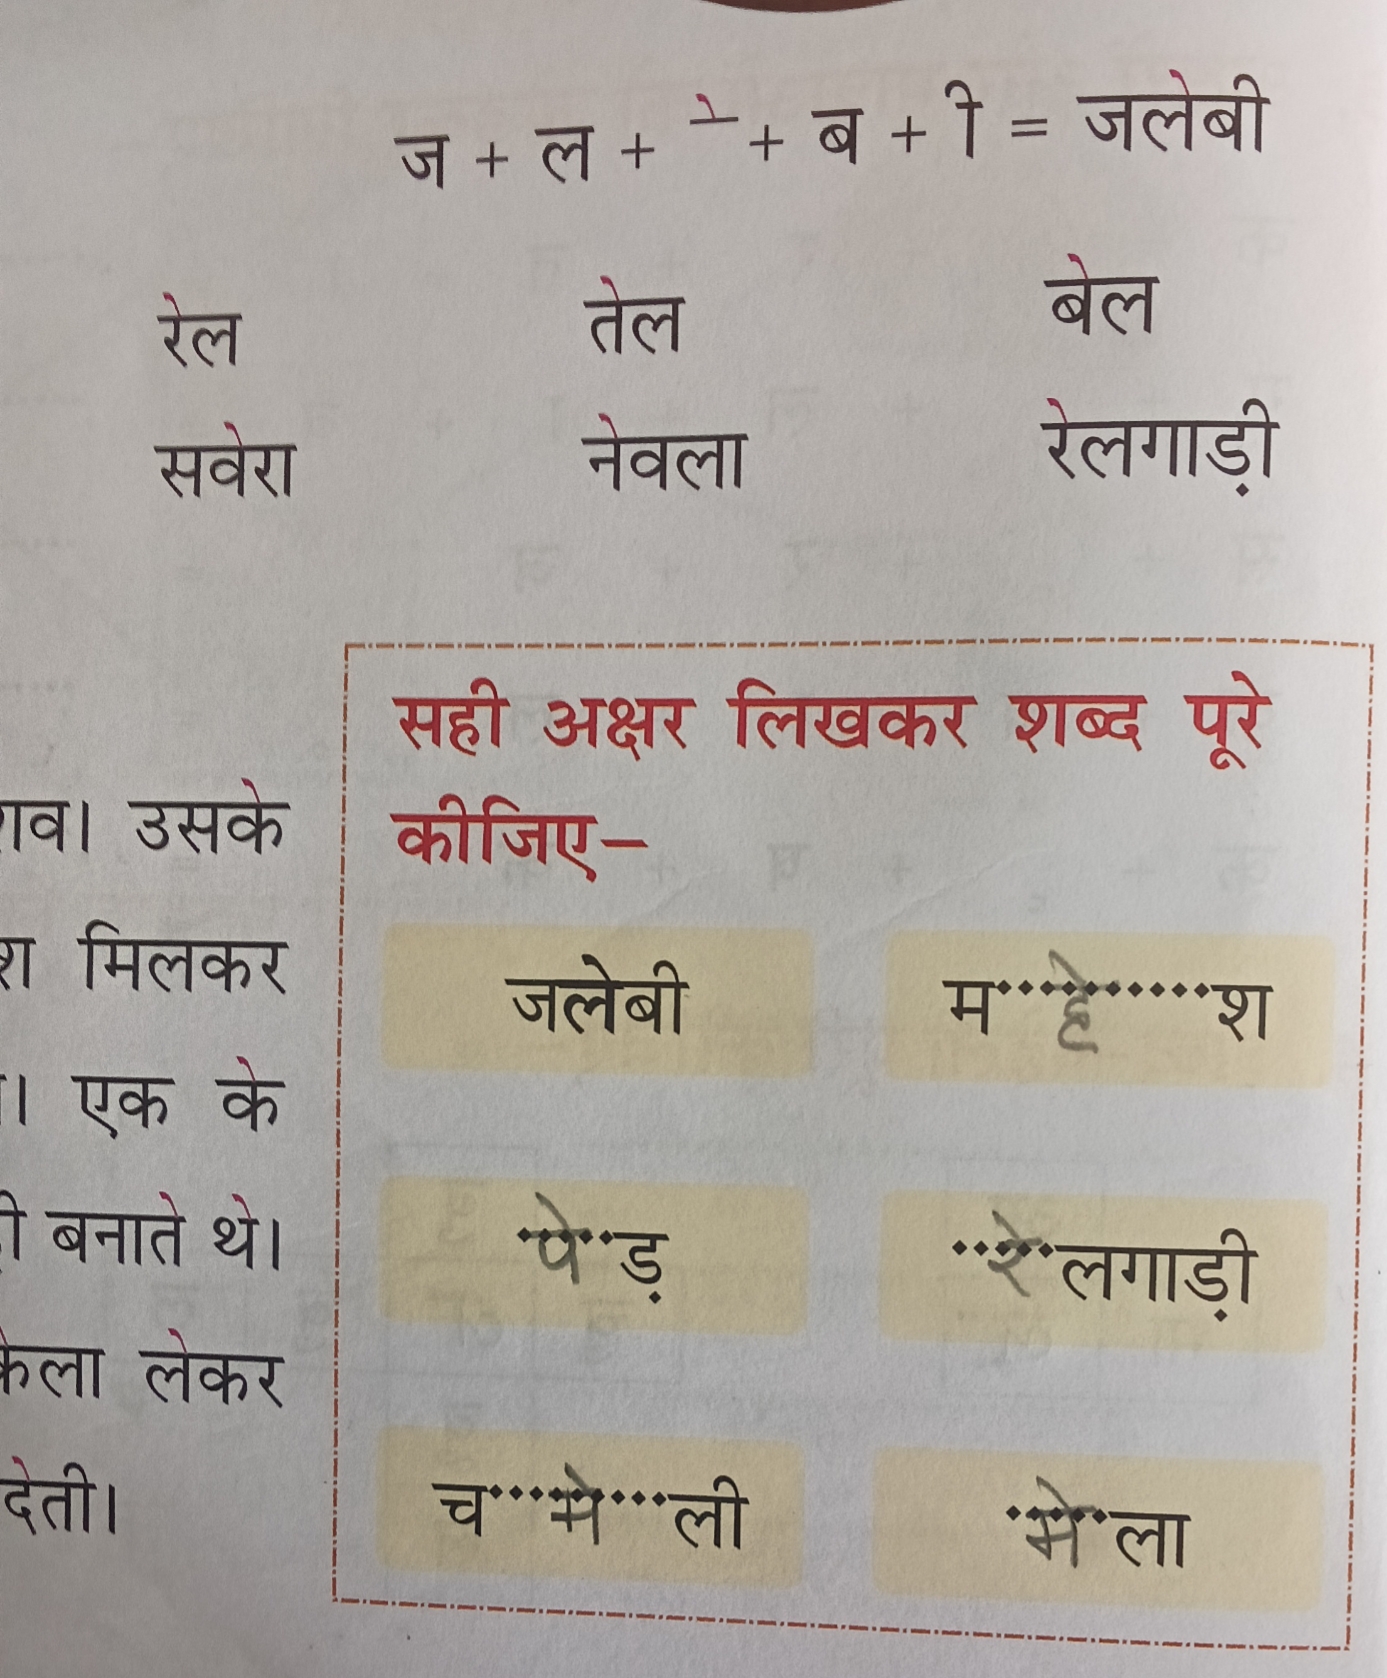 ज + ल + े + ब + ी = जलेबी
रेल तेल बेल
सवेरा नेवला रेलगाड़ी
उसके
मिलकर
एक के
बनाते थे।
लेकर
देती।
सही अक्षर लिखकर शब्द पूरे
कीजिए–
जलेबी म....हे....श
..पे..ड़ ..रे..लगाड़ी
च....मे....ली ..मे..ला